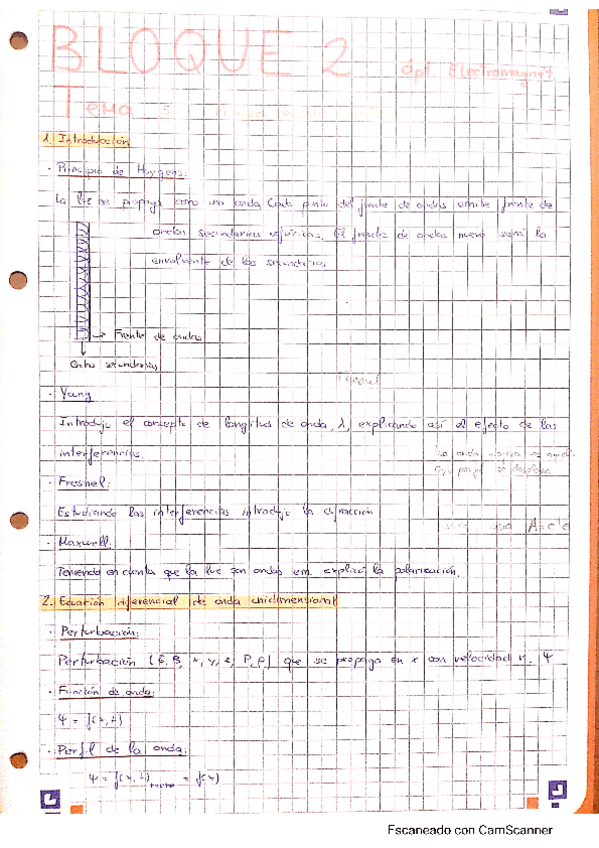 BLOQUE 2 Ópt. Electromagnét.
Tema 5
1. Introducción
· Principio de Huygens:
La luz se propaga como una onda. Cada punto del frente de ondas emite frente de
ondas secundarias esféricas. El frente de ondas nuevo será la
envolvente de las secundarias
→ Frente de ondas
Ondas secundarias
· Young
Introdujo el concepto de longitud de onda, λ, explicando así el efecto de las
interferencias.
· Fresnel:
Estudiando las interferencias introdujo la difracción
· Maxwell:
Teniendo en cuenta que la luz son ondas em. explicó la polarización.
2. Ecuación diferencial de onda unidimensional
· Perturbación:
Perturbación (E, B, x, y, z, P, ρ) que se propaga en x con velocidad v. Ψ
· Función de onda:
Ψ = f(x,t)
· Perfil de la onda:
Ψ = f(x,t) = f(x)
Escaneado con CamScanner